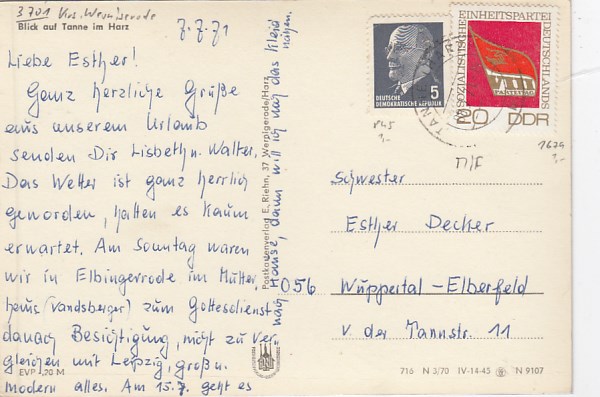 3701 Krs. Wernigerode
7.7.71
Blick auf Tanne im Harz
Liebe Esther!
Ganz herzliche Grüße
aus unserem Urlaub
senden Dir Lisbeth n. Walter.
Das Wetter ist ganz herrlich
geworden, hatten es kaum
erwartet. Am Sonntag waren
wir in Elbingerrode im Mutter
haus (Vandsberger) zum Gottesdienst
danach Besichtigung, nicht zu ver-
gleichen mit Leipzig, groß u.
modern alles. Am 15.7. geht es
nach Hause, dann will ich noch das Kleid
nähen.
EVP 1,20 M
Postkartenverlag E. Riehn, 37 Wernigerode/Harz
5
DEUTSCHE
DEMOKRATISCHE REPUBLIK
SOZIALISTISCHE EINHEITSPARTEI DEUTSCHLANDS
VIII.
PARTEITAG
20 DDR
TANNE
1679
Schwester
Esther Decker
056 Wuppertal-Elberfeld
V. der Tannstr. 11
716 N 3/70 IV-14-45 N 9107